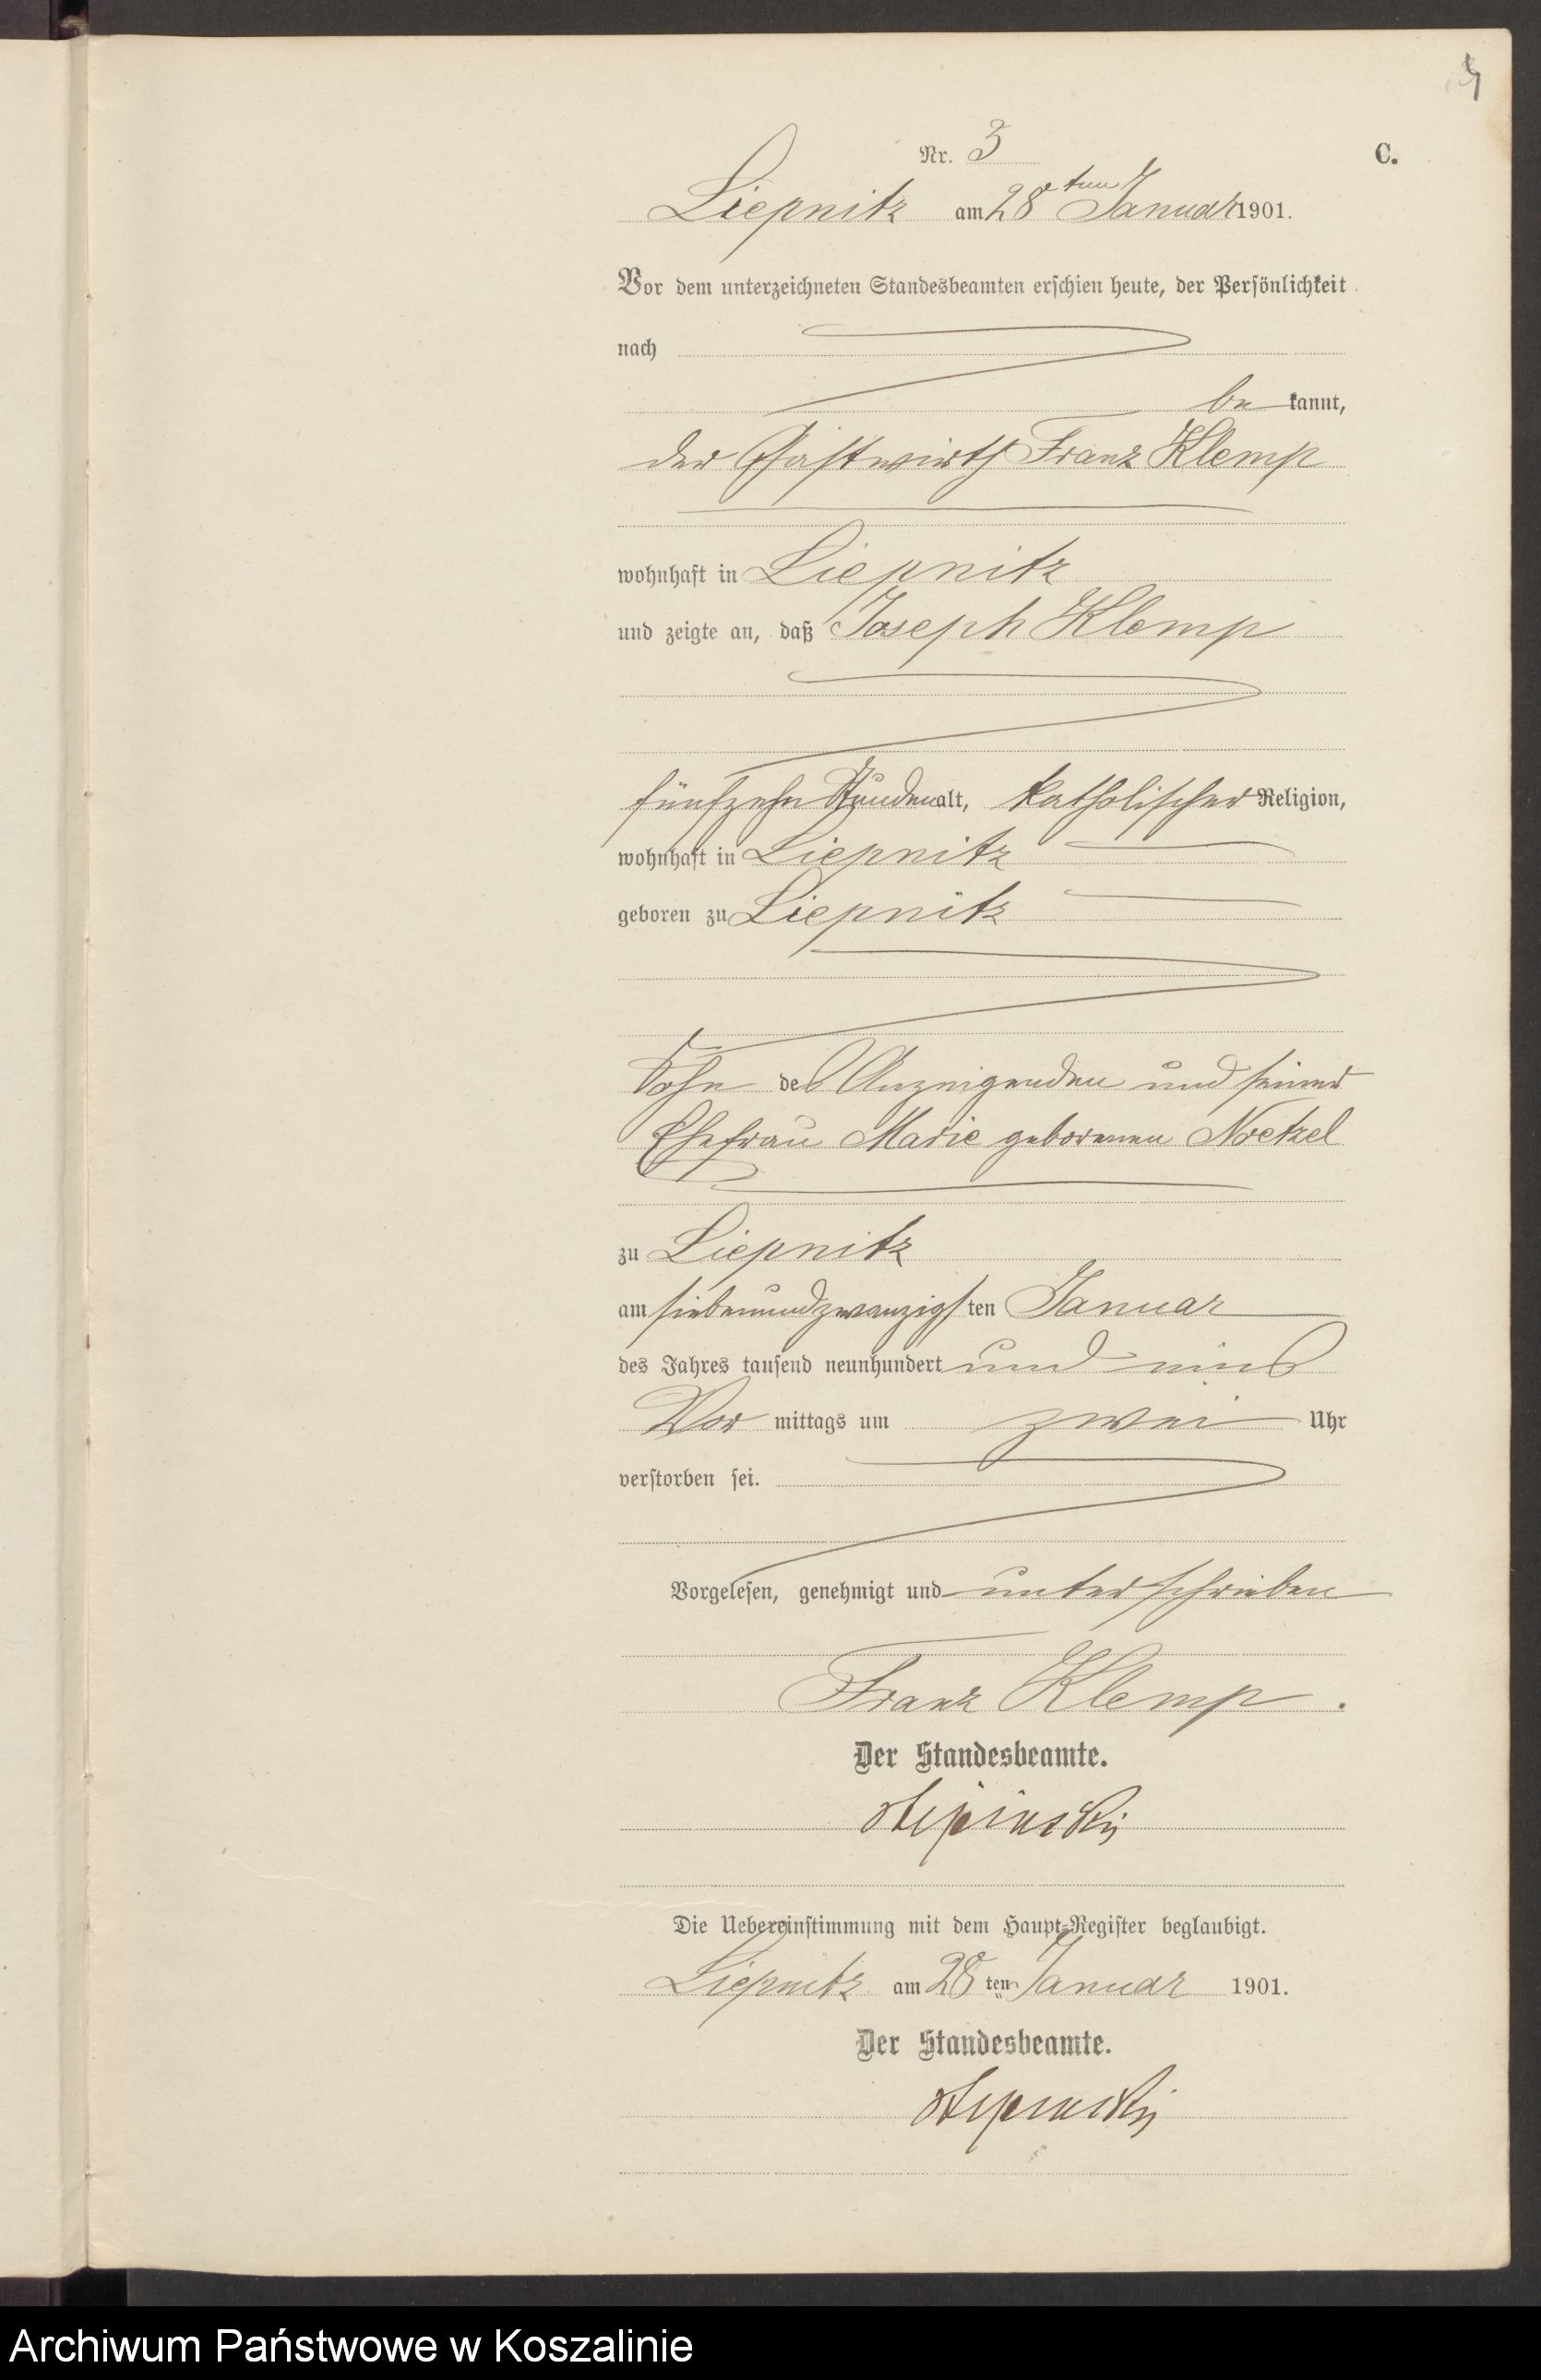 Nr. 3
C.
Liepnitz am 28ten Januar 1901.
Vor dem unterzeichneten Standesbeamten erschien heute, der Persönlichkeit
nach
be kannt,
der Gastwirth Franz Klemp
wohnhaft in Liepnitz
und zeigte an, daß Joseph Klemp
fünfzehn Stunden alt, katholischer Religion,
wohnhaft in Liepnitz
geboren zu Liepnitz
Sohn des Anzeigenden und seiner
Ehefrau Marie geborenen Noetzel
zu Liepnitz
am siebenundzwanzigsten Januar
des Jahres tausend neunhundert und eins
Vor mittags um zwei Uhr
verstorben sei.
Vorgelesen, genehmigt und unterschrieben
Franz Klemp.
Der Standesbeamte.
Die Uebereinstimmung mit dem Haupt-Register beglaubigt.
Liepnitz am 28ten Januar 1901.
Der Standesbeamte.
Archiwum Państwowe w Koszalinie